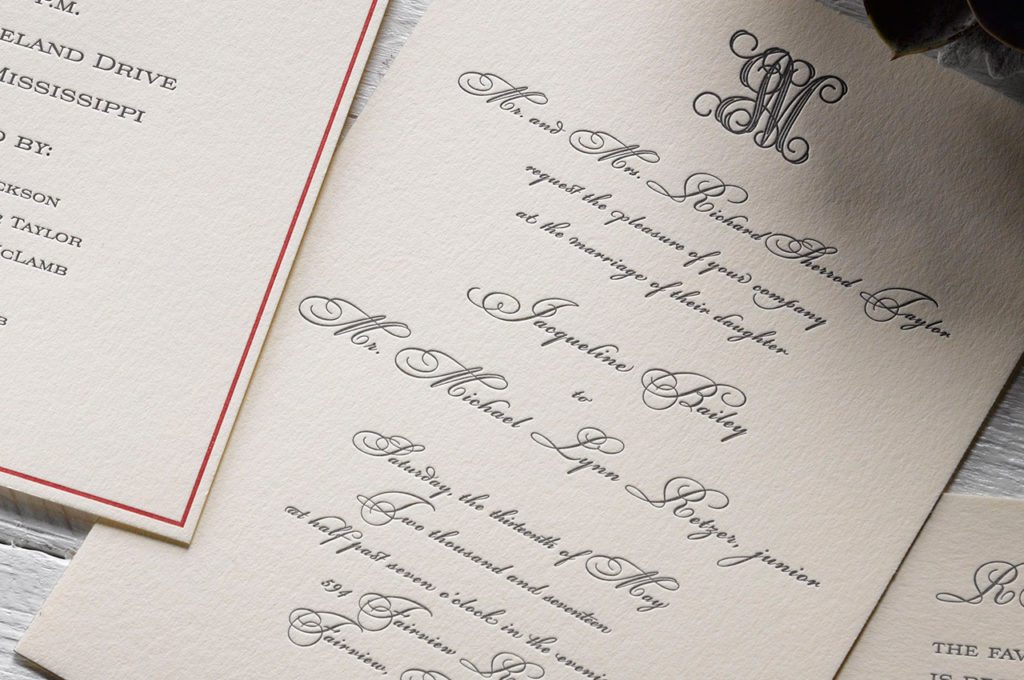 P.M.
ELAND DRIVE
MISSISSIPPI
D BY:
CKSON
TAYLOR
CLAMB
B
Mr. and Mrs. Richard Sherrod Taylor
request the pleasure of your company
at the marriage of their daughter
Jacqueline Bailey
to
Mr. Michael Lynn Retzer, junior
Saturday, the thirteenth of May
Two thousand and seventeen
at half past seven o'clock in the evenin
594 Fairview R
Fairview,
R
THE FAV